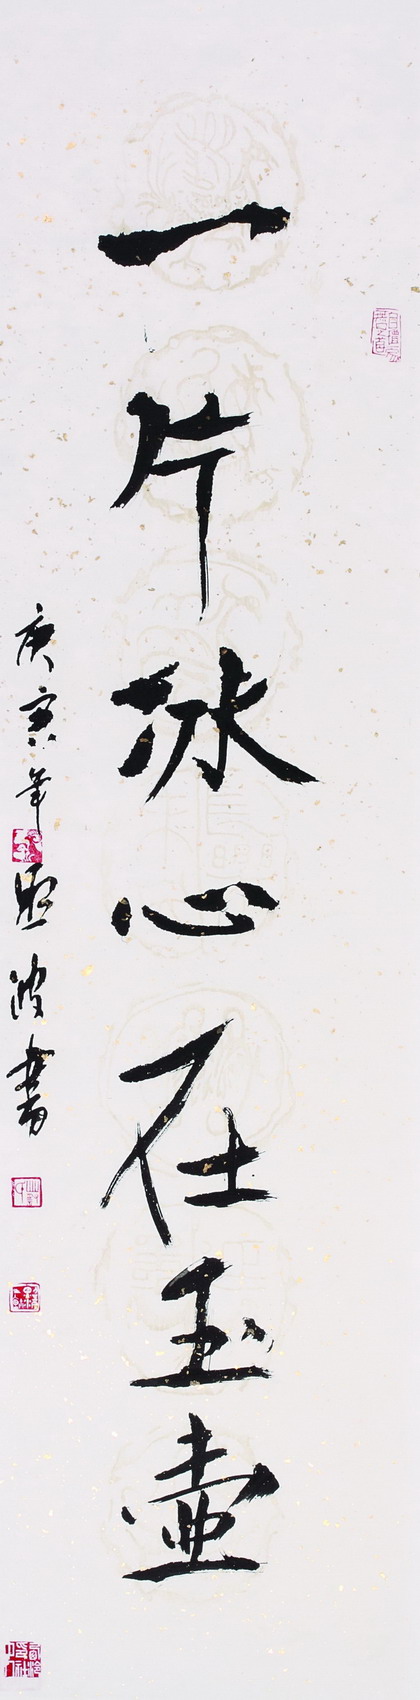 一片冰心在玉壶
庚寅年熙波书